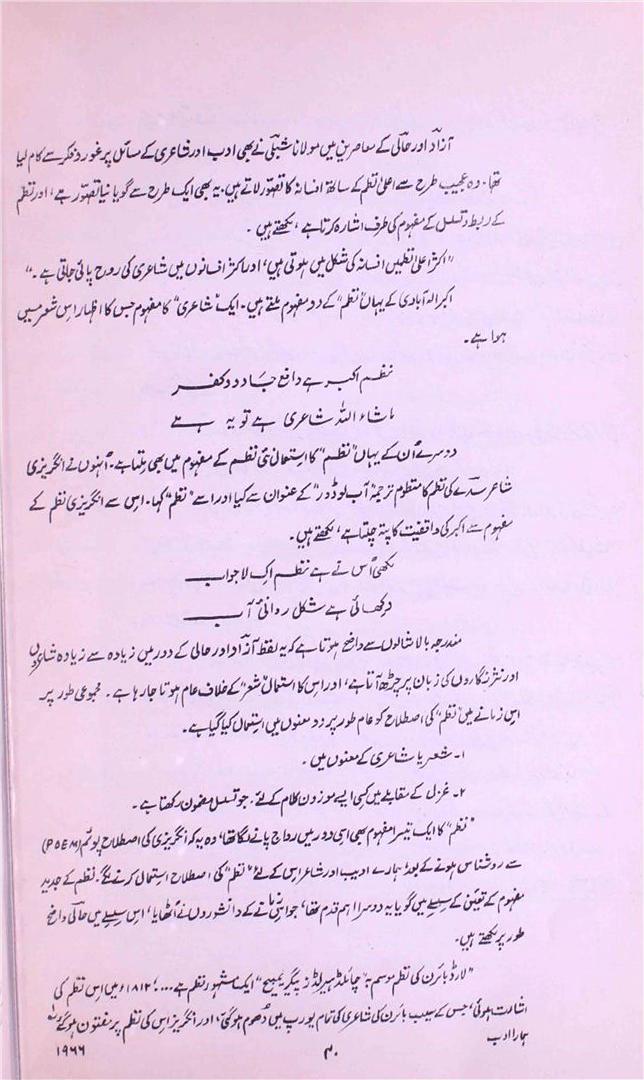 آزاد اور حالی کے معاصرین میں مولانا شبلی نے بھی ادب اور شاعری کے مسائل پر غور و فکر سے کام لیا
تھا۔ وہ عجیب طرح سے اعلیٰ نظم کے ساتھ افسانہ کا تصور لاتے ہیں، یہ بھی ایک طرح سے گویا نیا تصور ہے، اور نظم
کے ربط و تسلسل کے مفہوم کی طرف اشارہ کرتا ہے، لکھتے ہیں۔
"اکثر اعلیٰ نظمیں افسانہ کی شکل میں ہوتی ہیں، اور اکثر افسانوں میں شاعری کی روح پائی جاتی ہے۔"
اکبر الہ آبادی کے یہاں "نظم" کے دو مفہوم ملتے ہیں۔ ایک "شاعری" کا مفہوم جس کا اظہار اس شعر میں
ہوا ہے۔
نظم اکبر ہے دافع جادو و کفر
ماشاء اللہ شاعری ہے تو یہ ہے
دوسرے اُن کے یہاں "نظم" کا استعمال نئی نظم کے مفہوم میں بھی ملتا ہے۔ اُنہوں نے انگریزی
شاعر سدے کی نظم کا منظوم ترجمہ "آب لوڈور" کے عنوان سے کیا اور اسے "نظم" کہا۔ اس سے انگریزی نظم کے
مفہوم سے اکبر کی واقفیت کا پتہ چلتا ہے، لکھتے ہیں۔
لکھی اُس نے ہے نظم اک لاجواب
دکھائی ہے شکل روانیٔ آب
مندرجہ بالا مثالوں سے واضح ہوتا ہے کہ یہ لفظ آزاد اور حالی کے دور میں زیادہ سے زیادہ شاعروں
اور نثر نگاروں کی زبان پر چڑھ آتا ہے، اور اس کا استعمال "شعر" کے خلاف عام ہوتا جا رہا ہے۔ مجموعی طور پر
اس زمانے میں "نظم" کی اصطلاح کو عام طور پر دو معنوں میں استعمال کیا گیا ہے۔
۱۔ شعر یا شاعری کے معنوں میں۔
۲۔ غزل کے مقابلے میں کسی ایسے موزون کلام کے لئے۔ جو تسلسل مضمون رکھتا ہے۔
"نظم" کا ایک تیسرا مفہوم بھی اسی دور میں رواج پانے لگا تھا، وہ یہ کہ انگریزی کی اصطلاح پوئم (POEM)
سے روشناس ہونے کے بعد ہمارے ادیب اور شاعر اس کے لئے "نظم" کی اصطلاح استعمال کرنے لگے، نظم کے جدید
مفہوم کے تعین کے سلسلے میں گویا یہ دوسرا اہم قدم تھا، جو اس زمانے کے دانشوروں نے اُٹھایا، اس سلسلے میں حالی واضح
طور پر لکھتے ہیں۔
"لارڈ بائرن کی نظم موسم بہ "چائلڈ ہیرلڈز پلگریمیج" ایک مشہور نظم ہے....؛ ۱۸۱۲ء میں اس نظم کی
اشاعت ہوئی، جس کے سبب بائرن کی شاعری کی تمام یورپ میں دھوم ہو گئی، اور انگریز اس کی نظم پر مفتون ہو گئے"
ہمارا ادب
۳۰
۱۹۶۶